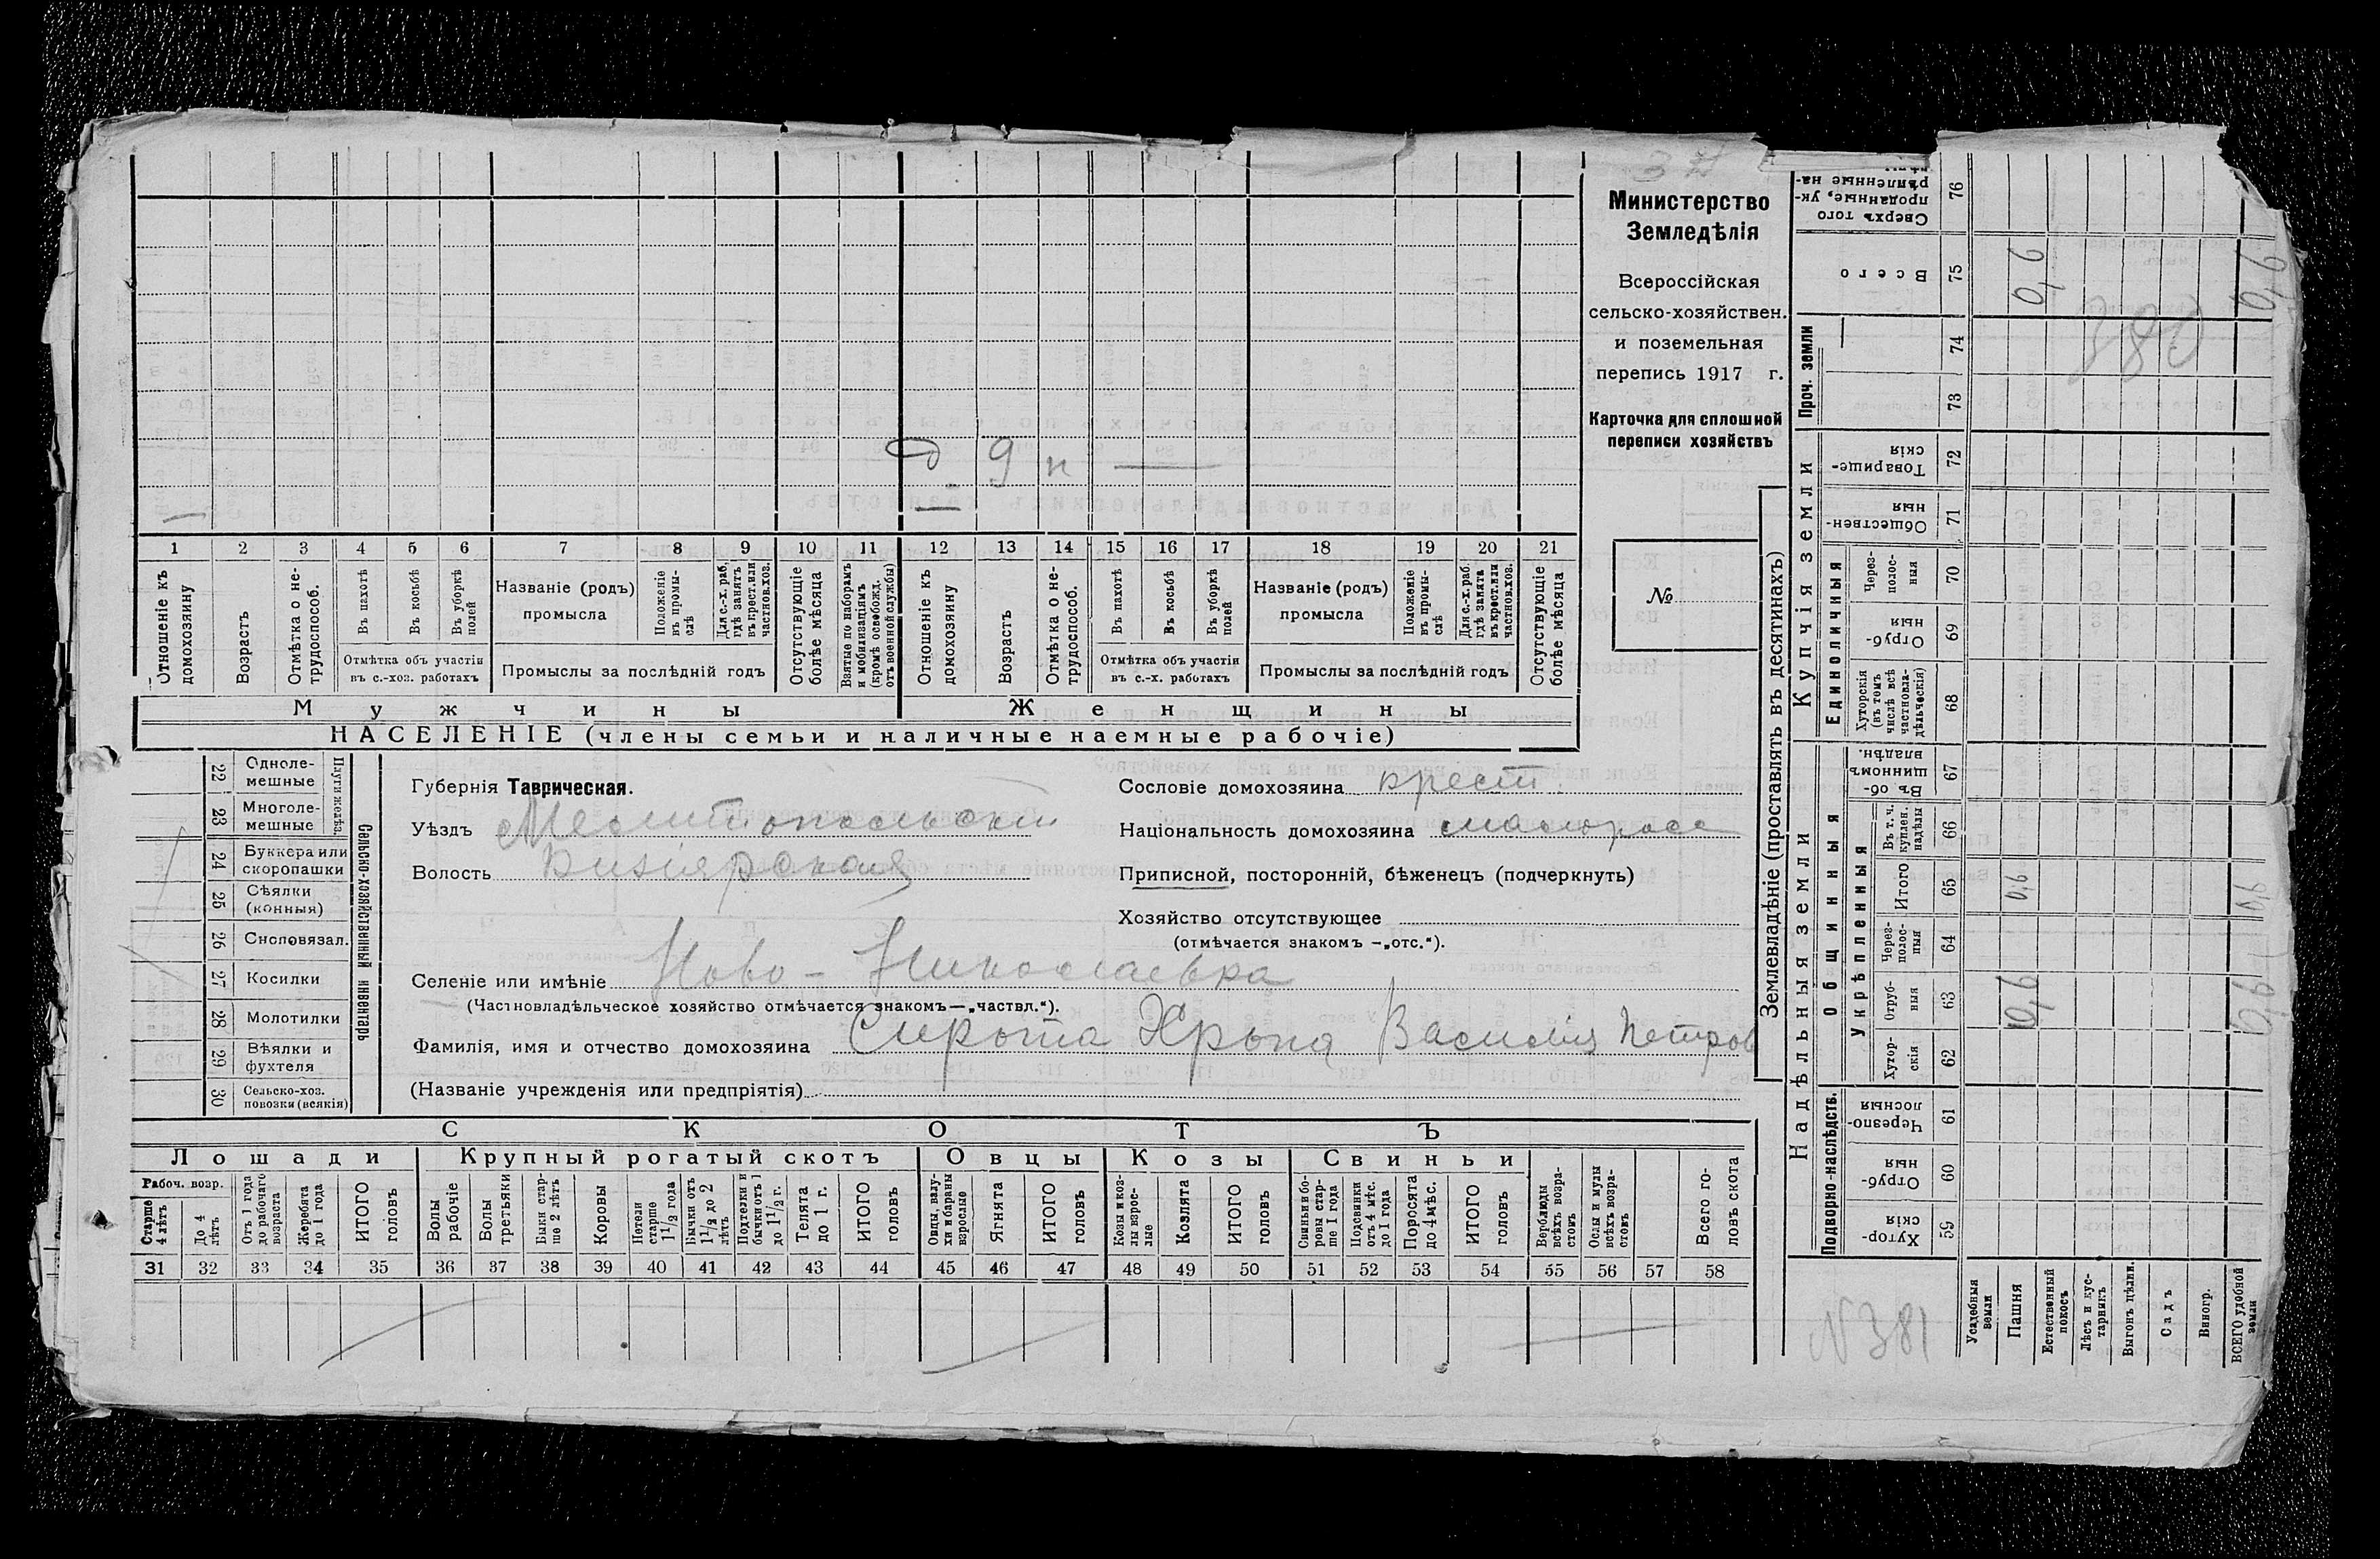 Министерство
Земледѣлія
Всероссійская
сельско-хозяйствен.
и поземельная
перепись 1917 г.
Карточка для сплошной
переписи хозяйствъ
№
д 9 н —
1 2 3 4 5 6 7 8 9 10 11 12 13 14 15 16 17 18 19 20 21
Отношеніе къ домохозяину
Возрастъ
Отмѣтка о не-трудоспособ.
Въ пахотѣ
Въ косьбѣ
Въ уборкѣ полей
Отмѣтка объ участіи
въ с.-хоз. работахъ
Названіе (родъ)
промысла
Положеніе въ промы-слѣ
Для с.-х. раб. гдѣ занятъ въ крест. или частнов. хоз.
Промыслы за послѣдній годъ
Отсутствующіе болѣе мѣсяца
Взятые по наборамъ и мобилизаціямъ (кромѣ освобожд. отъ военной службы)
Отношеніе къ домохозяину
Возрастъ
Отмѣтка о не-трудоспособ.
Въ пахотѣ
Въ косьбѣ
Въ уборкѣ полей
Отмѣтка объ участіи
въ с.-х. работахъ
Названіе (родъ)
промысла
Положеніе въ промы-слѣ
Для с.-х. раб. гдѣ занята въ крест. или частнов. хоз.
Промыслы за послѣдній годъ
Отсутствующіе болѣе мѣсяца
Мужчины Женщины
НАСЕЛЕНІЕ (члены семьи и наличные наемные рабочіе)
22 Одноле-мешные
23 Многоле-мешные
Плуги желѣз.
24 Буккера или скоропашки
25 Сѣялки (конныя)
26 Снсповязал.
27 Косилки
28 Молотилки
29 Вѣялки и фухтеля
30 Сельско-хоз. повозки (всякія)
Сельско-хозяйственный инвентарь
Губернія Таврическая.
Уѣздъ Мелитопольскій
Волость Кизіярская
Селеніе или имѣніе Ново-Николаевка
(Частновладѣльческое хозяйство отмѣчается знакомъ—„частвл.“).
Фамилія, имя и отчество домохозяина Сирота Хрьоня Василія Петров
(Названіе учрежденія или предпріятія)
Сословіе домохозяина крест.
Національность домохозяина малоросс
Приписной, посторонній, бѣженецъ (подчеркнуть)
Хозяйство отсутствующее
(отмѣчается знакомъ -„отс.“).
СКОТЪ
Лошади Крупный рогатый скотъ Овцы Козы Свиньи
Рабоч. возр.
Старше 4 лѣтъ
До 4 лѣтъ
Отъ 1 года до рабочаго возраста
Жеребята до 1 года
ИТОГО головъ
Волы рабочіе
Волы третьяки
Быки стар-ше 2 лѣтъ
Коровы
Нетели старше 1 1/2 года
Бычки отъ 1 1/2 до 2 лѣтъ
Подтелки и бычки отъ 1 до 1 1/2 г.
Телята до 1 г.
ИТОГО головъ
Овцы, валу-хи и бараны взрослые
Ягнята
ИТОГО головъ
Козы и коз-лы взрос-лые
Козлята
ИТОГО головъ
Свиньи и бо-ровы стар-ше 1 года
Подсвинки отъ 4 мѣс. до 1 года
Поросята до 4 мѣс.
ИТОГО головъ
Верблюды всѣхъ возра-стовъ
Ослы и мулы всѣхъ возра-стовъ
Всего го-ловъ скота
31 32 33 34 35 36 37 38 39 40 41 42 43 44 45 46 47 48 49 50 51 52 53 54 55 56 57 58
Землевладѣніе (проставлять въ десятинахъ)
Надѣльныя земли Купчія земли Проч. земли
Подворно-наслѣдств.
Общинныя
Укрѣпленныя
Единоличныя
Хутор-скія 59
Отруб-ныя 60
Черезпо-лосныя 61
Хутор-скія 62
Отруб-ныя 63
Через-полос-ныя 64
Итого 65
Въ т. ч. куплен. надѣлы 66
Въ об-щинномъ владѣн. 67
Хуторскія (въ томъ числѣ всѣ частновла-дѣльческія) 68
Отруб-ныя 69
Через-полос-ныя 70
Обществен-ныя 71
Товарище-скія 72
73
74
Всего 75
Сверхъ того проданные, ук-рѣпленные на- 76
Усадебныя земли
Пашня
Естественный покосъ
Лѣсъ и кус-тарникъ
Выгонъ цѣлин.
Садъ
Виногр.
ВСЕГО удобной земли
0,6 0,6 0,6
0,6 0,6 0,6
380
N381